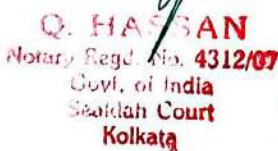 Q. HASSAN
Notary Regd. No. 4312/07
Govt. of India
Sealdah Court
Kolkata